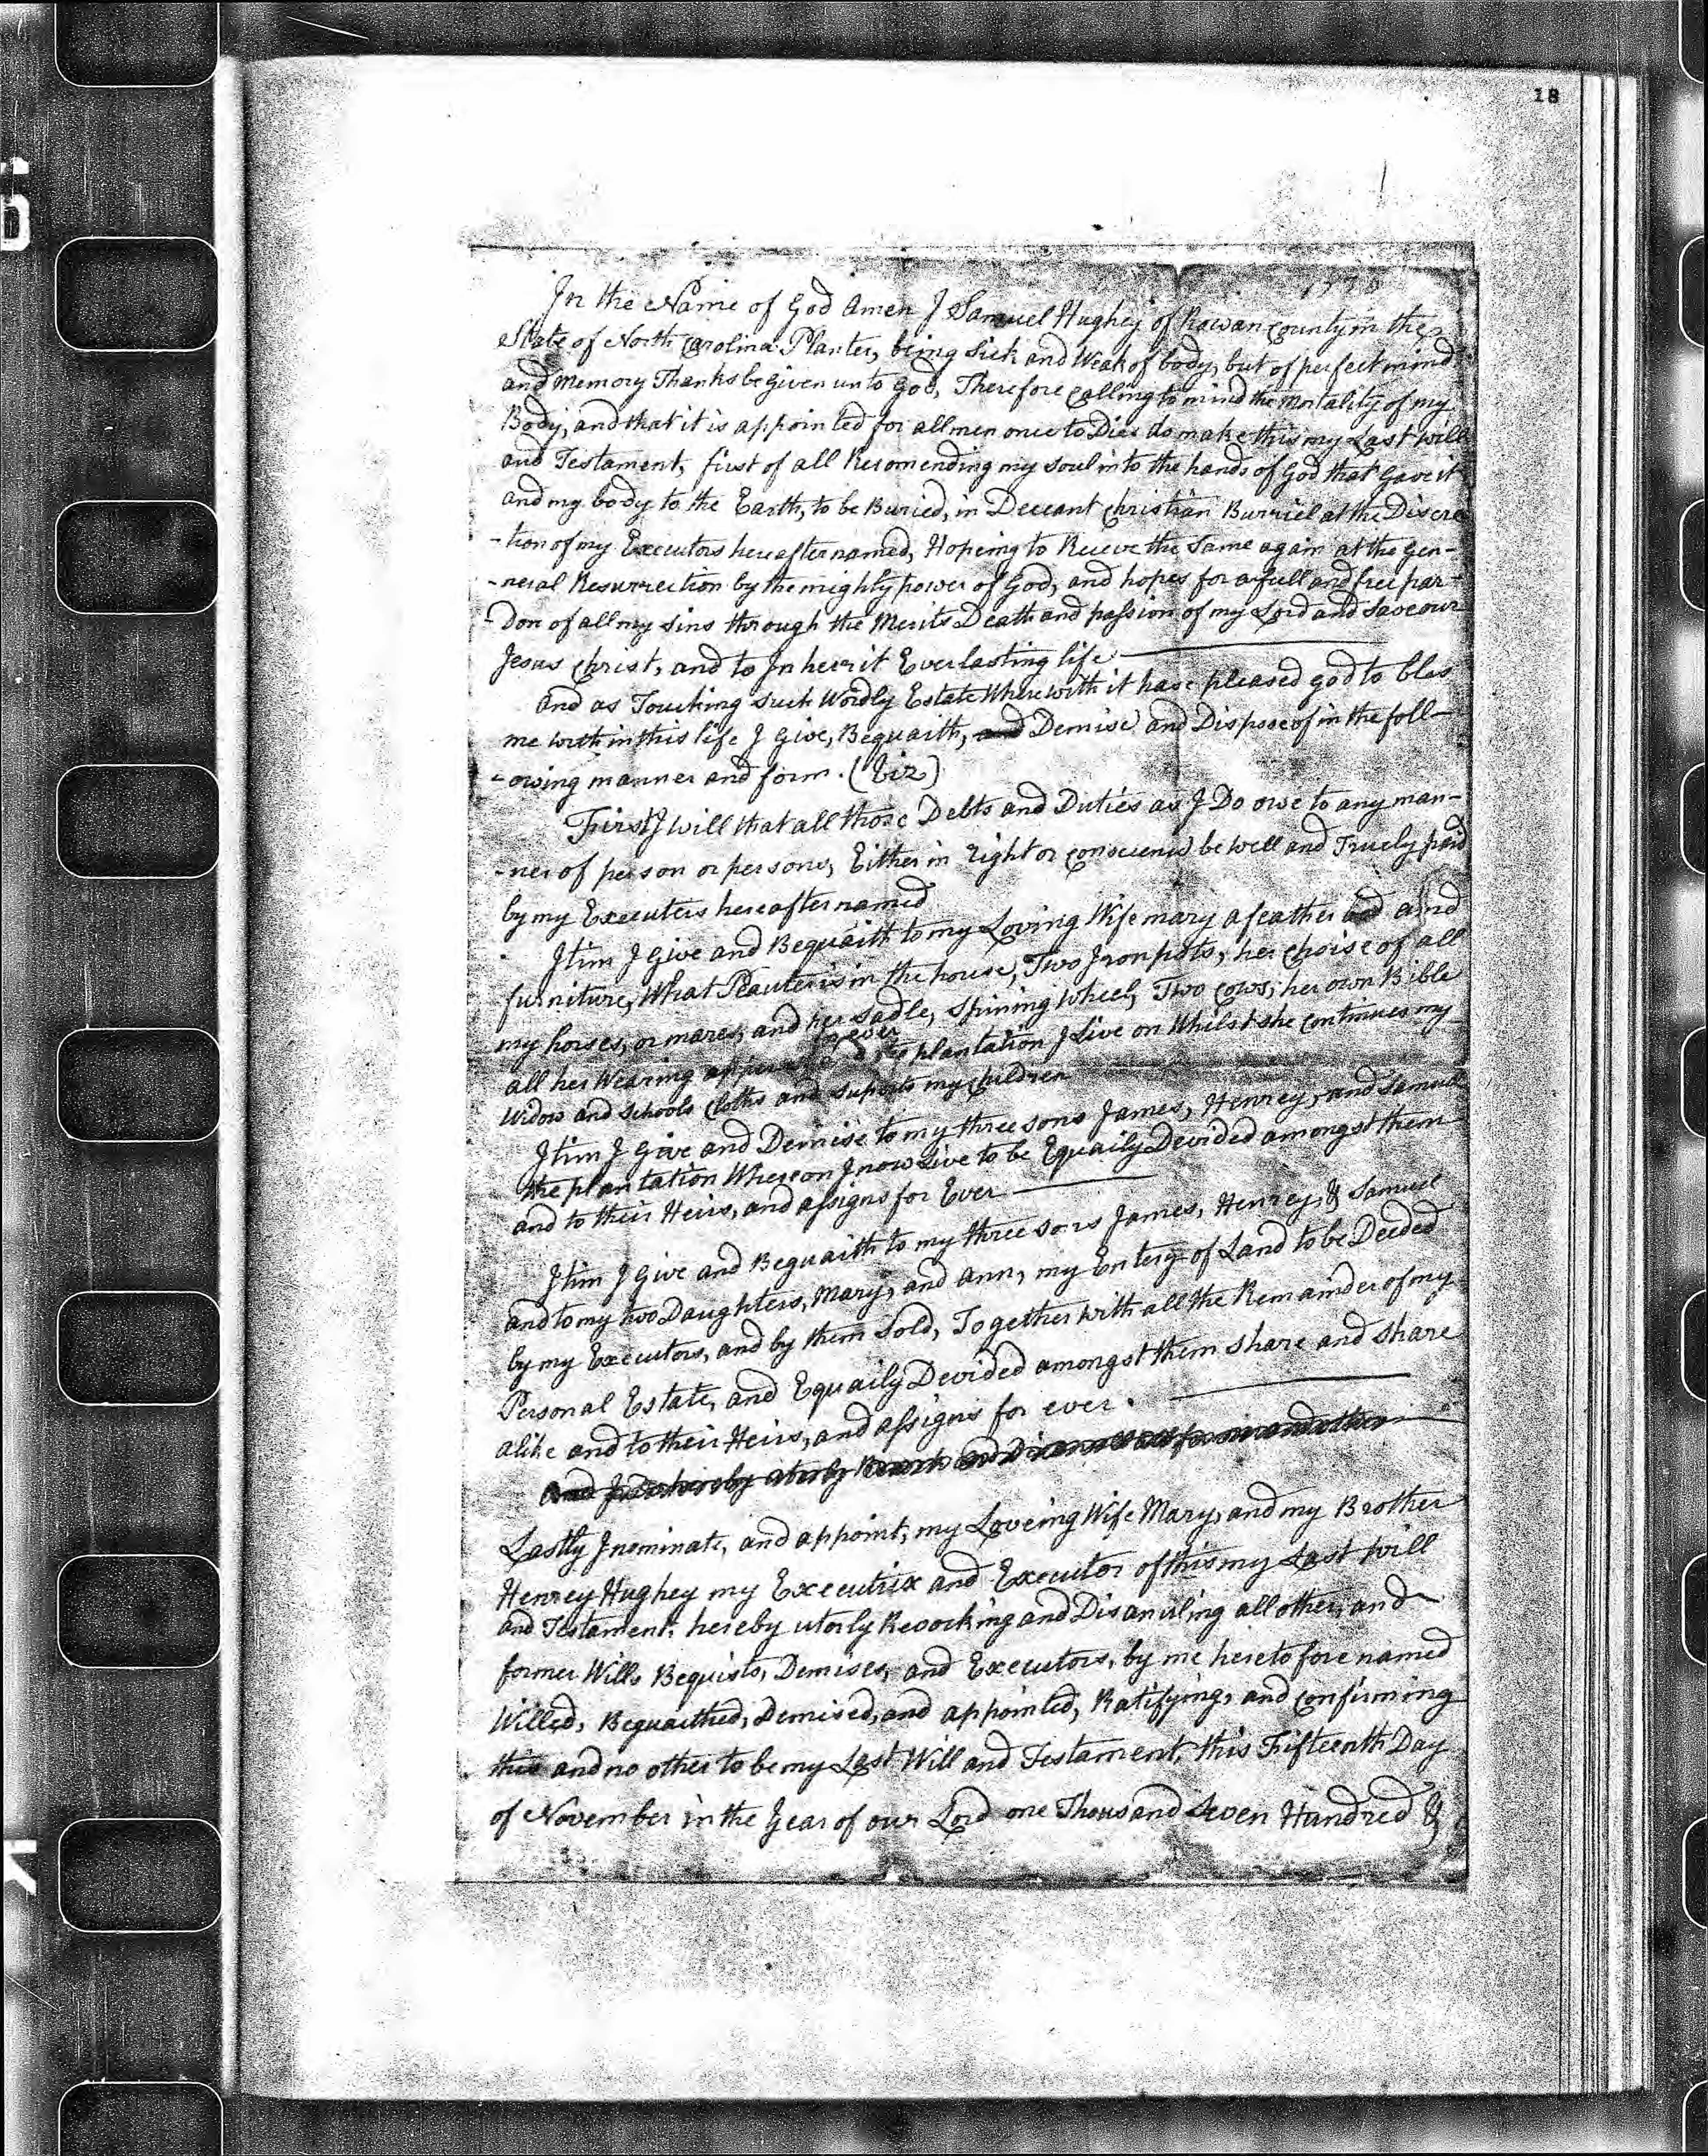 18
In the Name of God Amen I Samuel Hughey of Rowan County in the
State of North Carolina Planter, being Sick and Weak of body, but of perfect mind
and Memory Thanks be given unto God, Therefore Calling to mind the Mortality of my
Body, and that it is appointed for all men once to Die do make this my Last will
and Testament, first of all Recomending my soul into the hands of God that Gave it
and my body to the Earth, to be Buried, in Deceant Christian Burriel at the Discre
-tion of my Executors hereafter named, Hopeing to Recieve the Same again at the Gen-
-neral Resurrection by the mighty power of God, and hopes for a full and free par-
-Don of all my sins through the Merits Death and passion of my Lord and Saveour
Jesus Christ, and to Inherrit Everlasting life
And as Touching such Wordly Estate Wherewith it have pleased god to bles
me with in this life I Give, Bequaith, and Demise and Dispose of in the foll-
-owing manner and form. (Viz)
First I will that all those Debts and Duties as I Do owe to any man-
-ner of person or persons, Either in right or conscience be well and Truely paid
by my Executers hereafter named
Itim I Give and Bequaith to my Loving Wife mary a feather bed and
furniture, What Peauter is in the house, Two Iron pots, her Choise of all
my horses, or mares, and her sadle, Spining Wheel, Two Cows, her own Bible
for ever
all her Wearing plantation I Live on Whilst she Continues my
Widow and schools Cloths and suports my Children
Itim I Give and Demise to my three sons James, Henrey, and Samuel
the plantation Whereon I now Live to be Equaily Devided amongst them
and to their Heirs, and assigns for Ever
Itim I Give and Bequaith to my three sons James, Henrey, & Samuel
and to my two Daughters, Mary, and Ann, my Entery of Land to be Deeded
by my Executors, and by them Sold, Together with all the Remainder of my
Personal Estate, and Equaily Devided amongst them share and share
alike and to their Heirs, and assigns for ever.
And I do hereby uterly
Lastly I nominate, and appoint, my Loveing Wife Mary, and my Brother
Henrey Hughey my Executrix and Executor of this my Last Will
and Testament. hereby uterly Revocking and Disanuling all other, and
former Wills Bequists, Demises, and Executors, by me heretofore named
Willed, Bequaithed, Demised, and appointed, Ratifying, and Confirming
this and no other to be my Last Will and Testament, this Fifteenth Day
of November in the Year of our Lord one Thousand Seven Hundred &